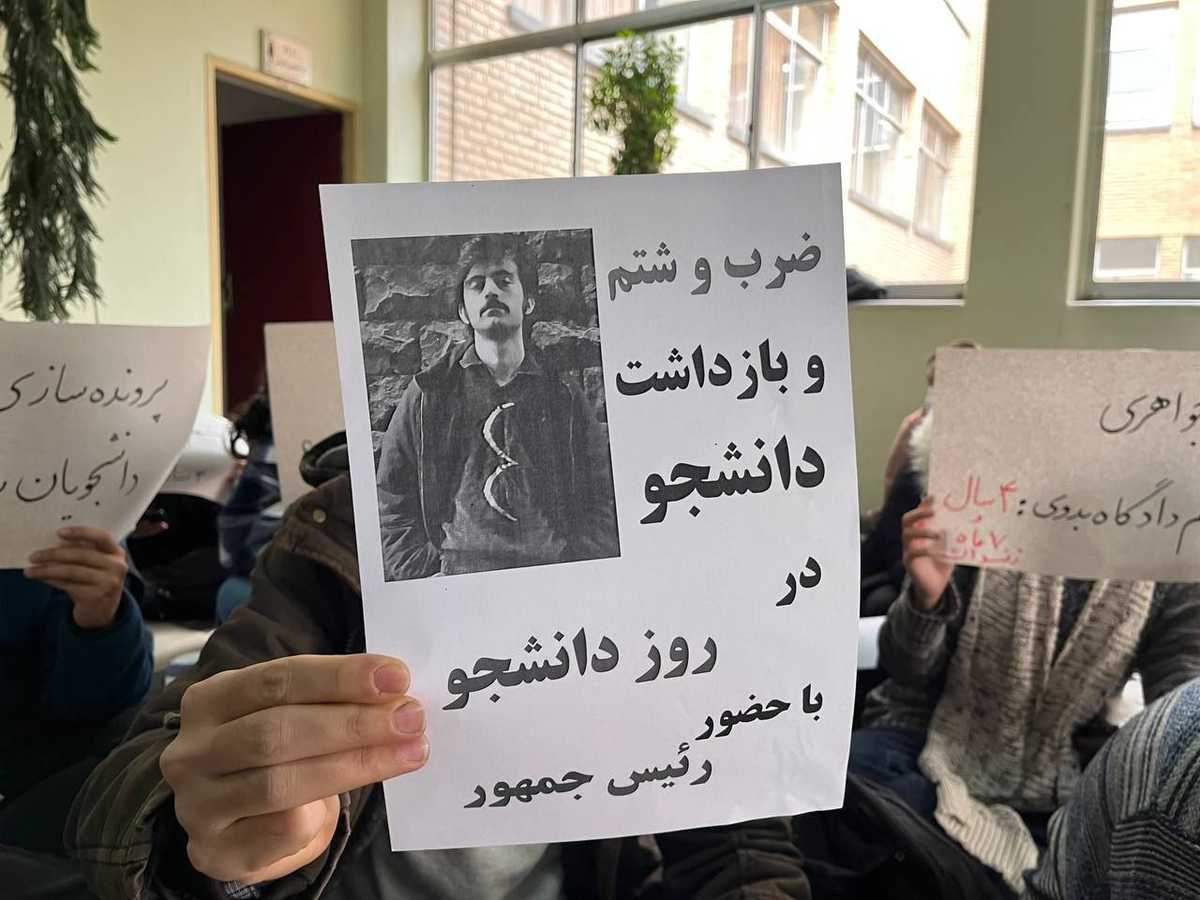 ضرب و شتم
و بازداشت
دانشجو
در
روز دانشجو
با حضور
رئیس جمهور
پرونده سازی
دانشجویان
جواهری
دادگاه بدوی: ۴ سال
۷ ماه
زندان